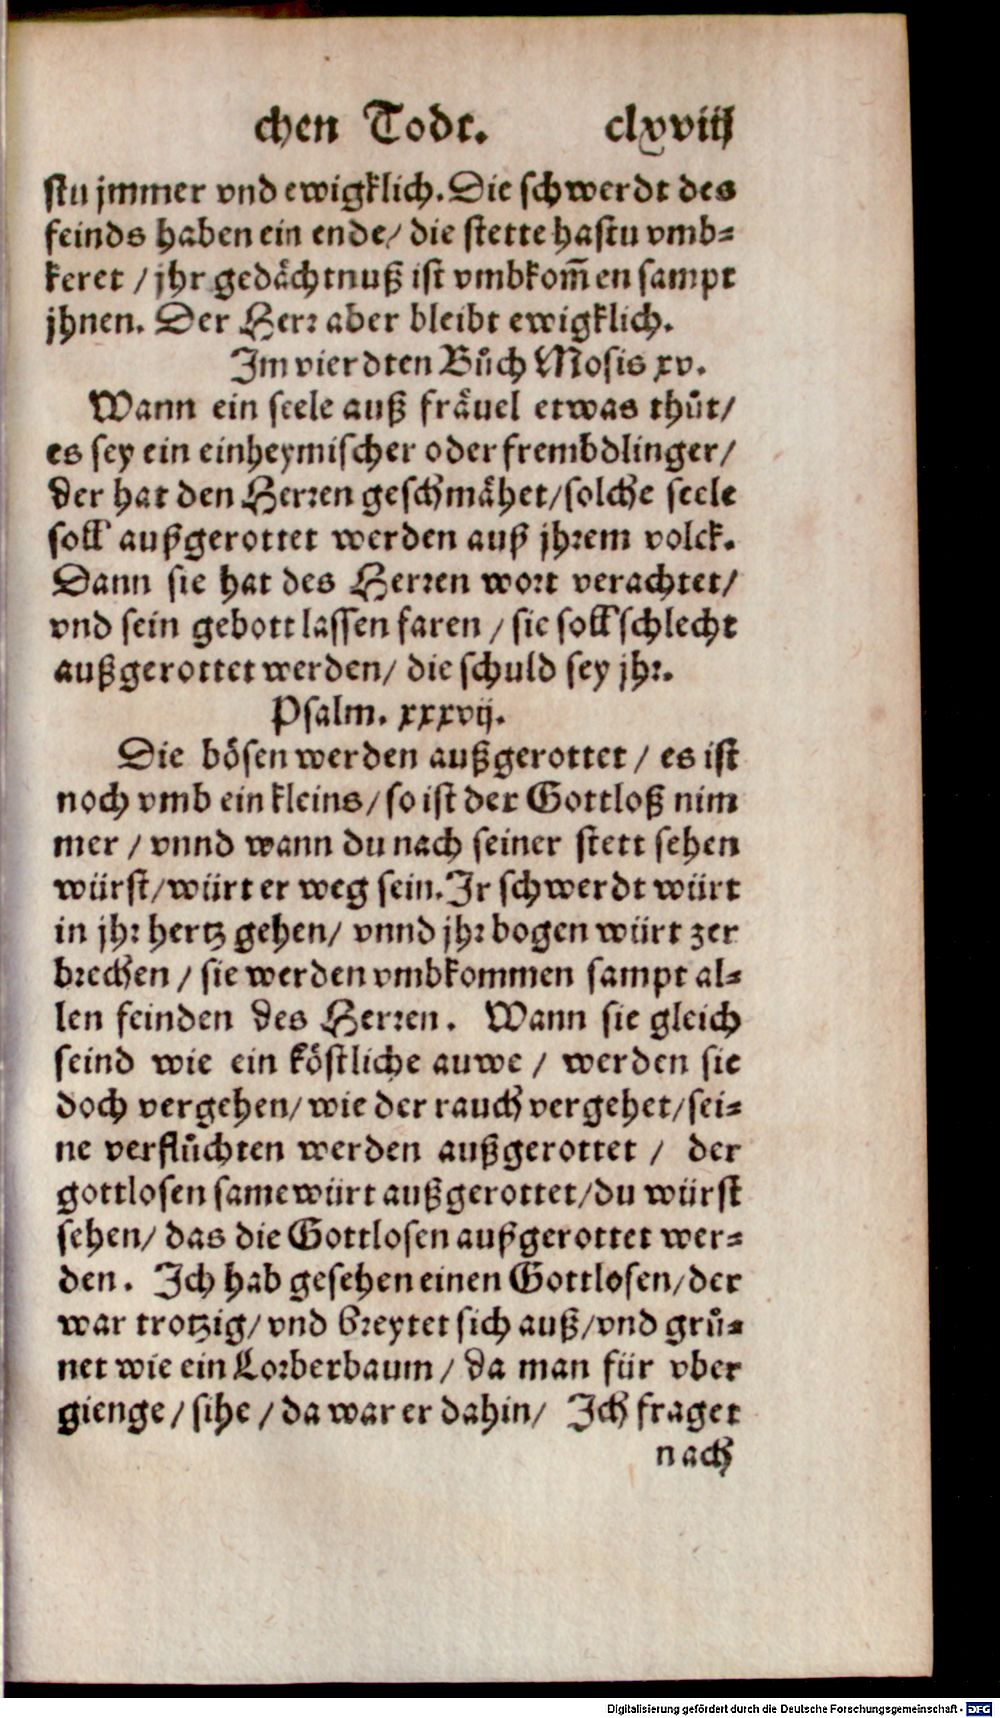 chen Todt. clxviij
stu jmmer vnd ewigklich. Die schwerdt des
feinds haben ein ende/ die stette hastu vmb=
keret / jhr gedächtnuß ist vmbkom̃en sampt
jhnen. Der Herr aber bleibt ewigklich.
Im vierdten Bůch Mosis xv.
Wann ein seele auß fräuel etwas thůt/
es sey ein einheymischer oder frembdlinger/
der hat den Herren geschmähet/solche seele
soll außgerottet werden auß jhrem volck.
Dann sie hat des Herren wort verachtet/
vnd sein gebott lassen faren / sie soll schlecht
außgerottet werden/ die schuld sey jhr.
Psalm. xxxvij.
Die bösen werden außgerottet / es ist
noch vmb ein kleins/ so ist der Gottloß nim
mer / vnnd wann du nach seiner stett sehen
würst/würt er weg sein. Ir schwerdt würt
in jhr hertz gehen/ vnnd jhr bogen würt zer
brechen / sie werden vmbkommen sampt al=
len feinden des Herren. Wann sie gleich
seind wie ein köstliche auwe / werden sie
doch vergehen/ wie der rauch vergehet/sei=
ne verflůchten werden außgerottet / der
gottlosen same würt außgerottet/du würst
sehen/ das die Gottlosen außgerottet wer=
den. Ich hab gesehen einen Gottlosen/der
war trotzig/ vnd breytet sich auß/vnd grů=
net wie ein Lorberbaum / da man für vber
gienge / sihe / da war er dahin/ Ich fraget
nach
Digitalisierung gefördert durch die Deutsche Forschungsgemeinschaft - DFG